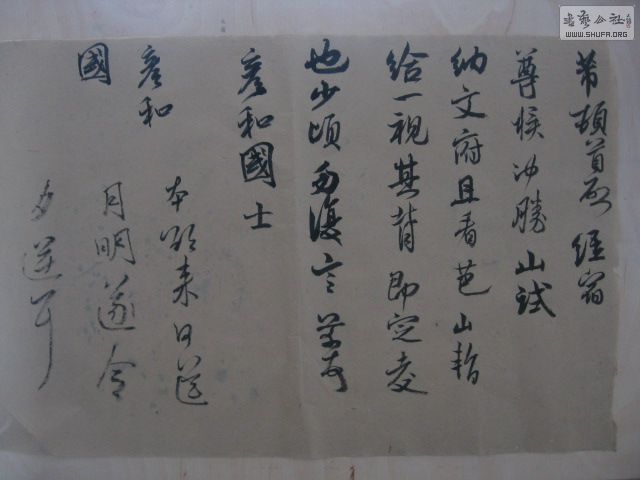 芾頓首啟 經宿
尊候沖勝 山試
納文府且看芭山暫
給一視其背即定交
也少頃勿復言 芾頓首
彥和國士
彥和 本欲來日送
國 月明遂今
夕送耳
書藝公社
WWW.SHUFA.ORG